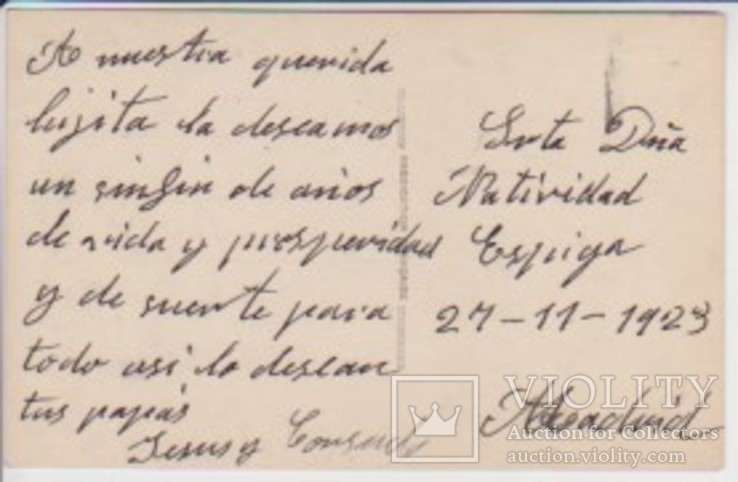 A nuestra querida
hijita la deseamos
un sinfin de años
de vida y prosperidad
y de suerte para
todo asi lo desean
tus papás
Jesus y
Srta Dña
Natividad
Espiga
27-11-1923
VIOLITY
Auction for Collectors
auction.violity.com